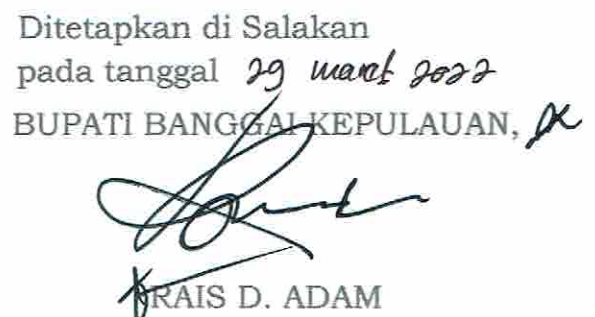 Ditetapkan di Salakan
pada tanggal 29 maret 2022
BUPATI BANGGAI KEPULAUAN,
RAIS D. ADAM